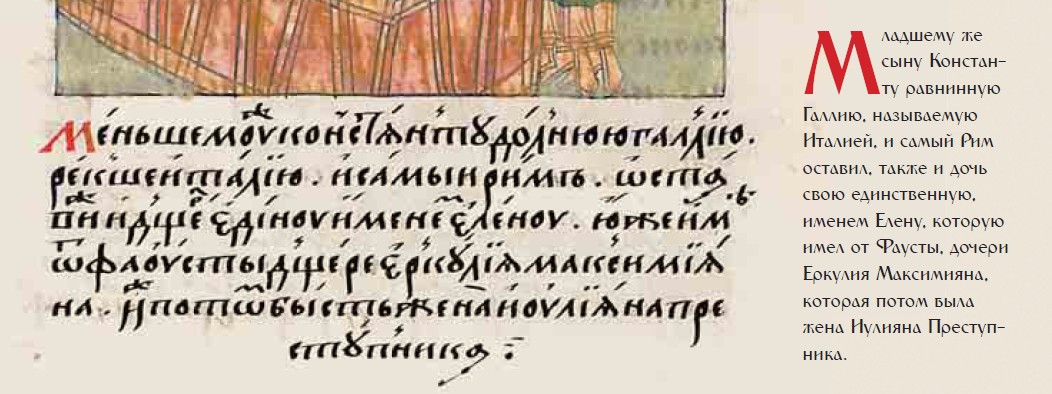 Меньшемоу же коньстѧнтꙋ долнюю галлїю.
рекше италїю. и самыи римъ. ѡставь
пи и дщерь единоу именемъ еленоу. юже им
ѿ фаоусты дщере еркꙋлїѧ максимїѧ
на. иже потѡ бысть жена иоулїѧна пре
стꙋпника
Младшему же
сыну Констан-
ту равнинную
Галлию, называемую
Италией, и самый Рим
оставил, также и дочь
свою единственную,
именем Елену, которую
имел от Фаусты, дочери
Еркулия Максимияна,
которая потом была
жена Иулияна Преступ-
ника.